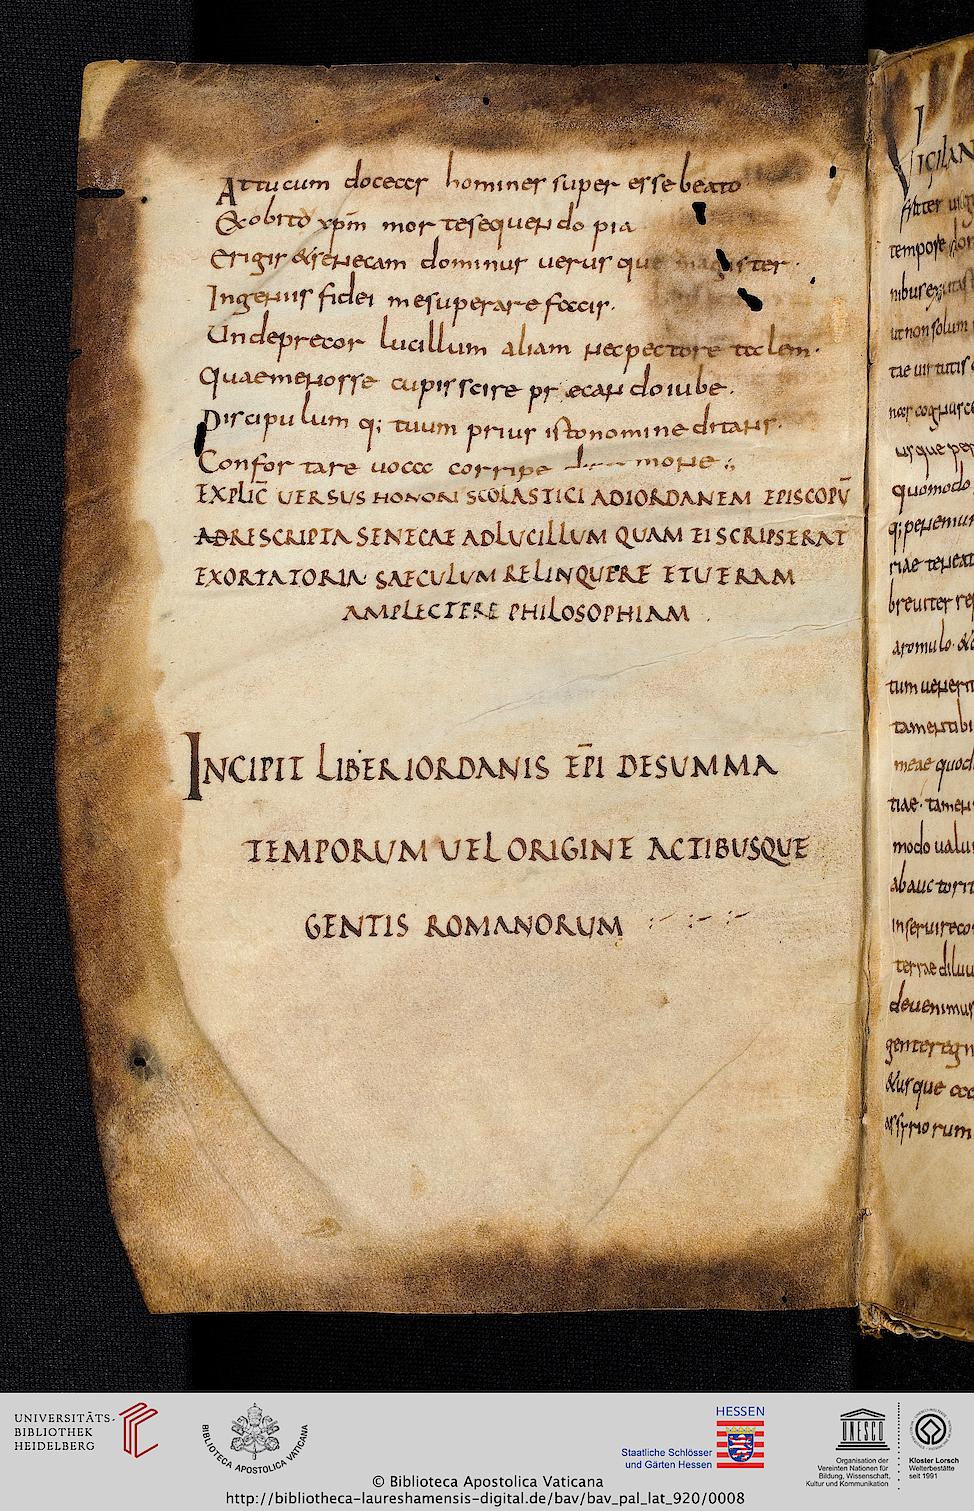 Attucum doceas homines super esse beato
& obito xpm mortesequendo pia
Erigis & senecam dominus verus que magister.
Ingenus fidei mesuperare facis.
Undeprecor lucillum aliam necpectore talem.
Quaemenosse cupis scire precando iube.
Discipulum q; tuum prius istonomine ditans.
Confortare uoca corripe mone
EXPLIC̅ UERSUS HONORI SCOLASTICI ADIORDANEM EPISCOPU̅
AD RESCRIPTA SENECAE ADLUCILLUM QUAM EI SCRIPSERAT
EXORTATORIA SAECULUM RELINQUERE ETUERAM
AMPLECTERE PHILOSOPHIAM.
INCIPIT LIBER IORDANIS EP̅I DESUMMA
TEMPORUM UEL ORIGINE ACTIBUSQUE
GENTIS ROMANORUM
Vigilan
tempore
nibus
ut non solum
tae uirtutis
usque per
quomodo
q; penemur
riae teneat
breuiter re
a romulo. &
tum uener
tamentibi
meae quod
tiae. tamen
modo ualu
ab auctorit
inseruireco
terrae diluu
deuenimus
genteregn
& usque
assyriorum
UNIVERSITÄTS-
BIBLIOTHEK
HEIDELBERG
BIBLIOTECA APOSTOLICA VATICANA
HESSEN
Staatliche Schlösser
und Gärten Hessen
UNESCO
Organisation der
Vereinten Nationen für
Bildung, Wissenschaft,
Kultur und Kommunikation
Kloster Lorsch
Welterbestätte
seit 1991
© Biblioteca Apostolica Vaticana
http://bibliotheca-laureshamensis-digital.de/bav/bav_pal_lat_920/0008